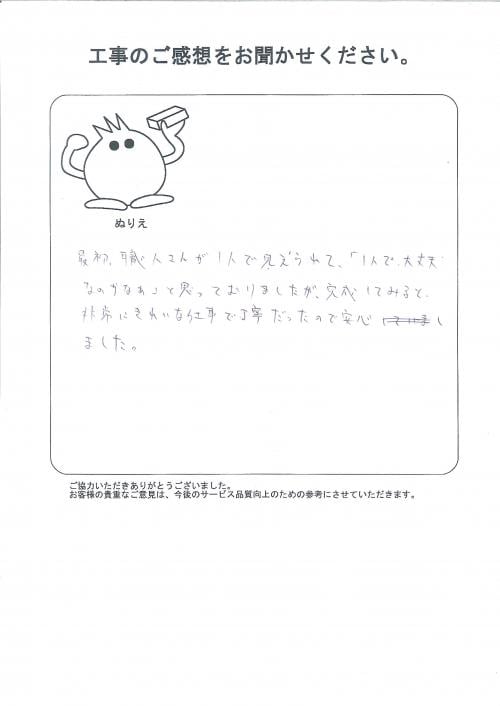 工事のご感想をお聞かせください。
ぬりえ
最初、職人さんが1人で見えられて、「1人で大丈夫
なのかなぁ」と思っておりましたが、完成してみると、
非常にきれいな仕事で丁寧だったので安心し
ました。
ご協力いただきありがとうございました。
お客様の貴重なご意見は、今後のサービス品質向上のための参考にさせていただきます。